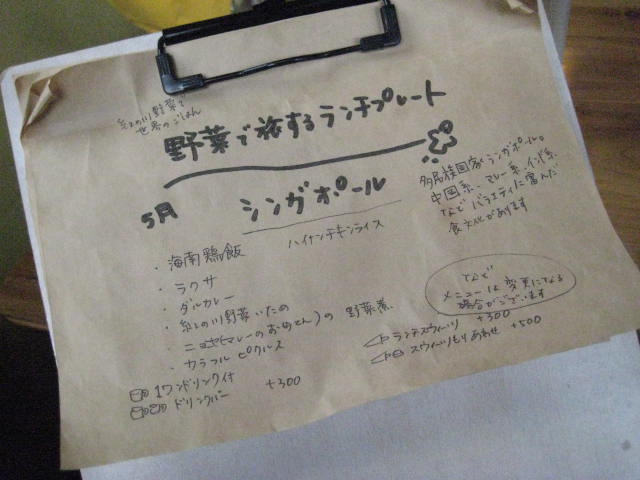 紀の川野菜で
世界のごはん
野菜で旅するランチプレート
5月 シンガポール
多民族国家シンガポール。
中国系、マレー系、インド系
などバラエティに富んだ
食文化があります
・海南鶏飯 ハイナンチキンライス
・ラクサ
・ダルカレー
・紀の川野菜いたの
(マレーのおめせん)の野菜煮
・カラフルピクルス
など
メニューは変更になる
場合がございます
ランチスウィーツ +300
スウィーツもりあわせ +500
1ワンドリンク付
ドリンクバー +300